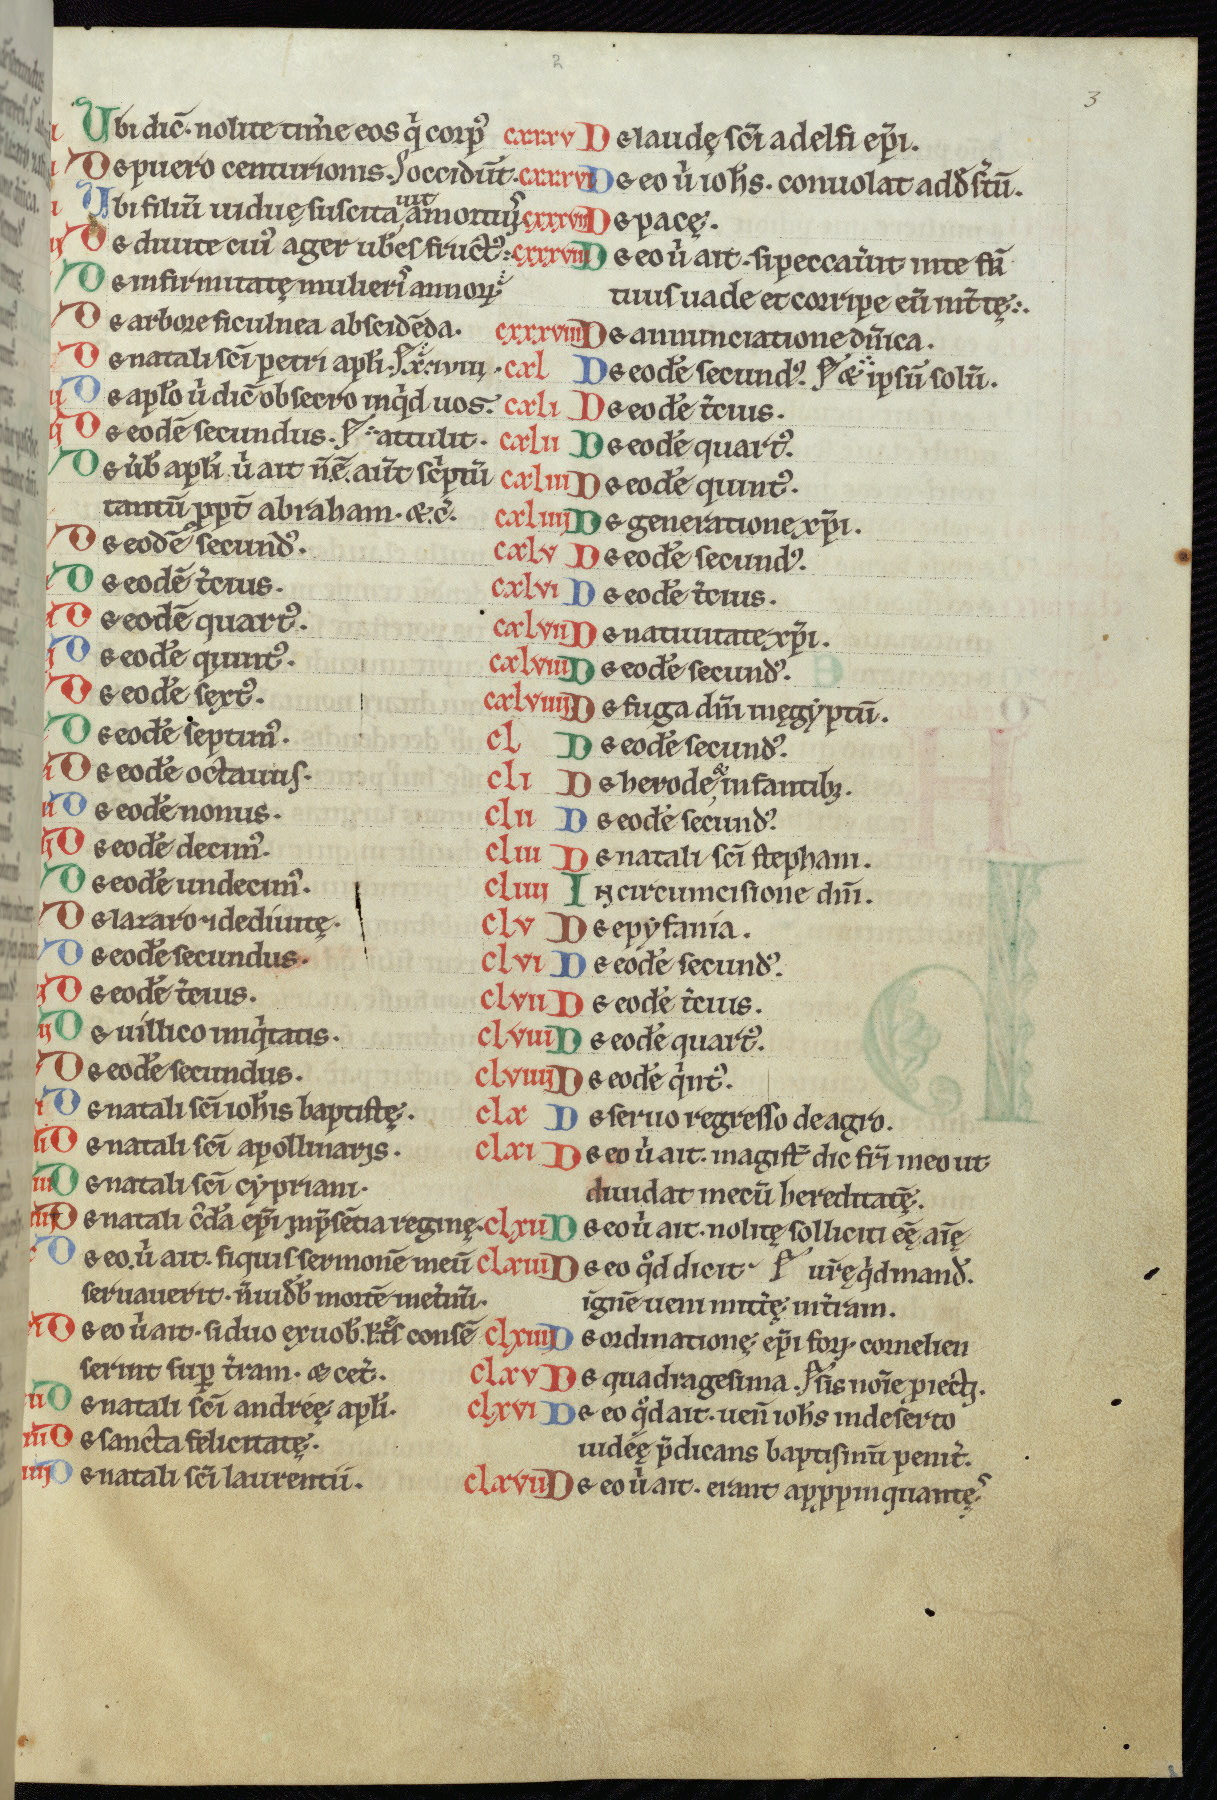 2
3
Ubi dic̄· nolite tim̄e eos q̇ corp᷒
De puero centurionis·
Ubi filiū uiduę suscitauit a mortuis
De diuite cui᷒ ager ub̄es fruct᷒
De infirmitatę mulieris annorꝫ
De arbore ficulnea abscidēda·
De natali sc̄i petri apl̄i·
De apl̄o ů dic̄ obsecro inq̇d uos·
De eodē secundus· attulit·
De ůb apl̄i ů ait
tantū ppt̄ abraham· &c̄·
De eodē secund᷒·
De eodē t̄cius·
De eodē quart᷒·
De eod̄e quint᷒·
De eod̄e sext᷒·
De eod̄e septim᷒·
De eod̄e octauus·
De eod̄e nonus·
De eod̄e decim᷒·
De eod̄e undecim᷒·
De lazaro & diuitę·
De eod̄e secundus·
De eod̄e t̄cius·
De uillico iniq̇tatis·
De eod̄e secundus·
De natali sc̄i ioh̄is baptistę·
De natali sc̄i apollinaris·
De natali sc̄i cẏpriani·
De natali ep̄i inp̄sētia reginę·
De eo· ů ait· siquis sermonē meū
seruauerit· mortē
De eo ů ait· si duo ex uob̄· consē
serint suꝑ t̄ram· & cet̄·
De natali sc̄i andréę apl̄i·
De sancta felicitatę·
De natali sc̄i laurentii·
cxxxv De laudę sc̄i adelfi ep̄i·
cxxxvi De eo ů ioh̄s· conuolat
cxxxvii De pacę·
cxxxviii De eo ů ait· si peccau̇it inte fr̄
tuus uade et corripe eū int̄ tę·
cxxxviiii De annunciatione dn̄ica·
cxl De eod̄e secund᷒· & ipsū solū·
cxli De eod̄e t̄cius·
cxlii De eod̄e quart᷒·
cxliii De eod̄e quint᷒·
cxliiii De generatione xp̄i·
cxlv De eod̄e secund᷒·
cxlvi De eod̄e t̄cius·
cxlvii De natiuitate xp̄i·
cxlviii De eod̄e secund᷒·
cxlviiii De fuga dn̄i inęgẏptū·
cl De eod̄e secund᷒·
cli De herode & infantibꝫ·
clii De eod̄e secund᷒·
cliii De natali sc̄i stephani·
cliiii In circumcisione dn̄i·
clv De epẏfania·
clvi De eod̄e secund᷒·
clvii De eod̄e t̄cius·
clviii De eod̄e quart᷒·
clviiii De eod̄e q̇nt᷒·
clx De seruo regresso de agro·
clxi De eo ů ait· magist̄ dic fr̄i meo ut
diuidat mecū hereditatę̄·
clxii De eo ů ait· nolitę solliciti eę̄ aīę
clxiii De eo qd̊ dicit· mand̄·
ignē ueni mitt̄ę int̄ram·
clxiiii De ordinationę ep̄i cornelien
clxv De quadragesima·
clxvi De eo qd̊ ait· uen̄ ioh̄s indeserto
iudéę p̄dicans baptismū penit̄·
clxvii De eo ů ait· erant appropinquantę᷒